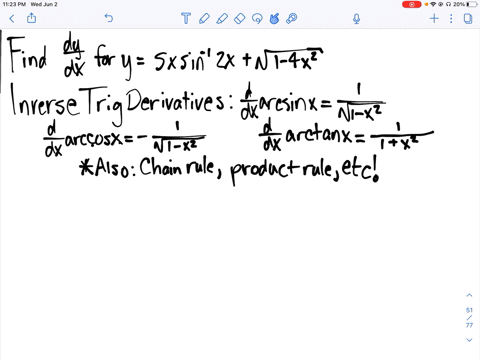 11:23 PM Wed Jun 2
20%
Find dy/dx for y = 5x sin⁻¹ 2x + √(1-4x²)
Inverse Trig Derivatives: d/dx arcsinx = 1/√(1-x²)
d/dx arccosx = - 1/√(1-x²) d/dx arctanx = 1/(1+x²)
*Also: Chain rule, product rule, etc!
51
/
77